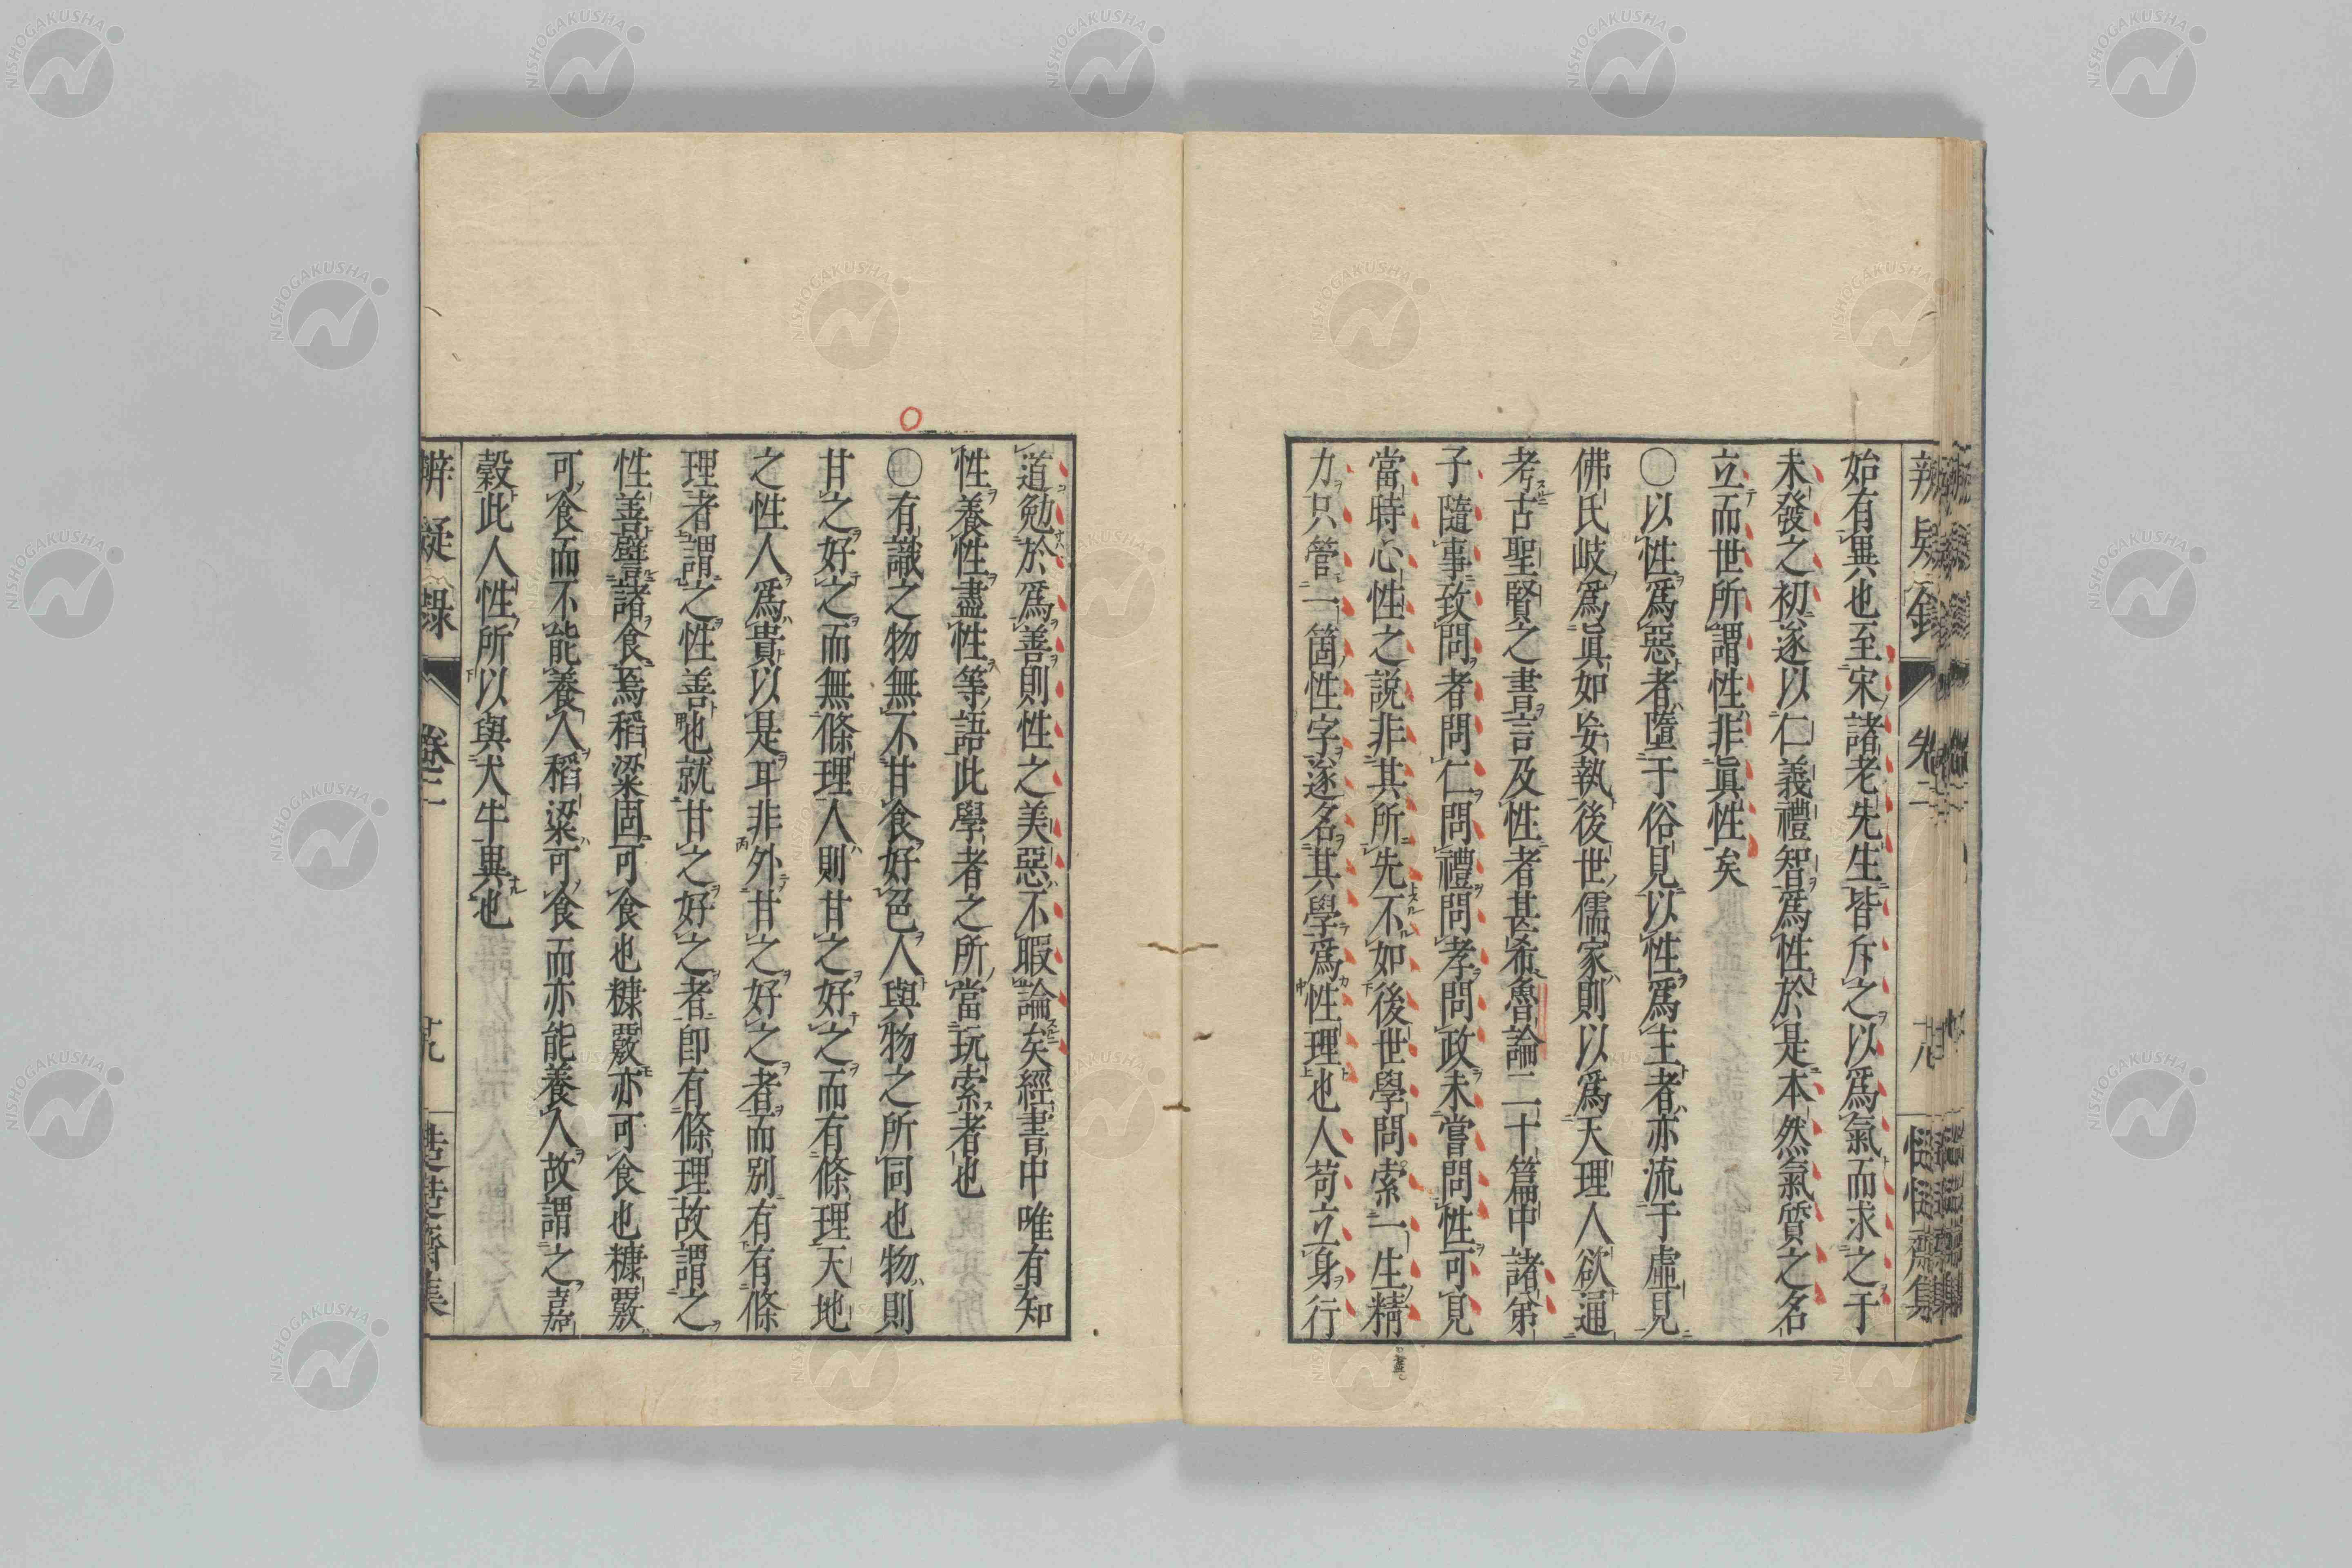 始有異也至宋諸老先生皆斥之以爲氣而求之于
未發之初遂以仁義禮智爲性於是本然氣質之名
立而世所謂性非眞性矣
〇以性爲惡者墮于俗見以性爲主者亦流于虛見
佛氏岐爲眞如妄執後世儒家則以爲天理人欲通
考古聖賢之書言及性者甚希魯論二十篇中諸弟
子隨事致問者問仁問禮問孝問政未嘗問性可見
當時心性之説非其所先不如後世學問索一生精
力只管一箇性字遂名其學爲性理也人苟立身行
道勉於爲善則性之美惡不暇論矣經書中唯有知
性養性盡性等語此學者之所當玩索者也
〇有識之物無不甘食好色人與物之所同也物則
甘之好之而無條理人則甘之好之而有條理天地
之性人爲貴以是耳非外甘之好之者而別有有條
理者謂之性善也就甘之好之者卽有條理故謂之
性善譬諸食焉稻粱固可食也糠覈亦可食也糠覈
可食而不能養人稻粱可食而亦能養人故謂之嘉
穀此人性所以與犬牛異也
辨疑錄 卷三 十九
NISHOGAKUSHA